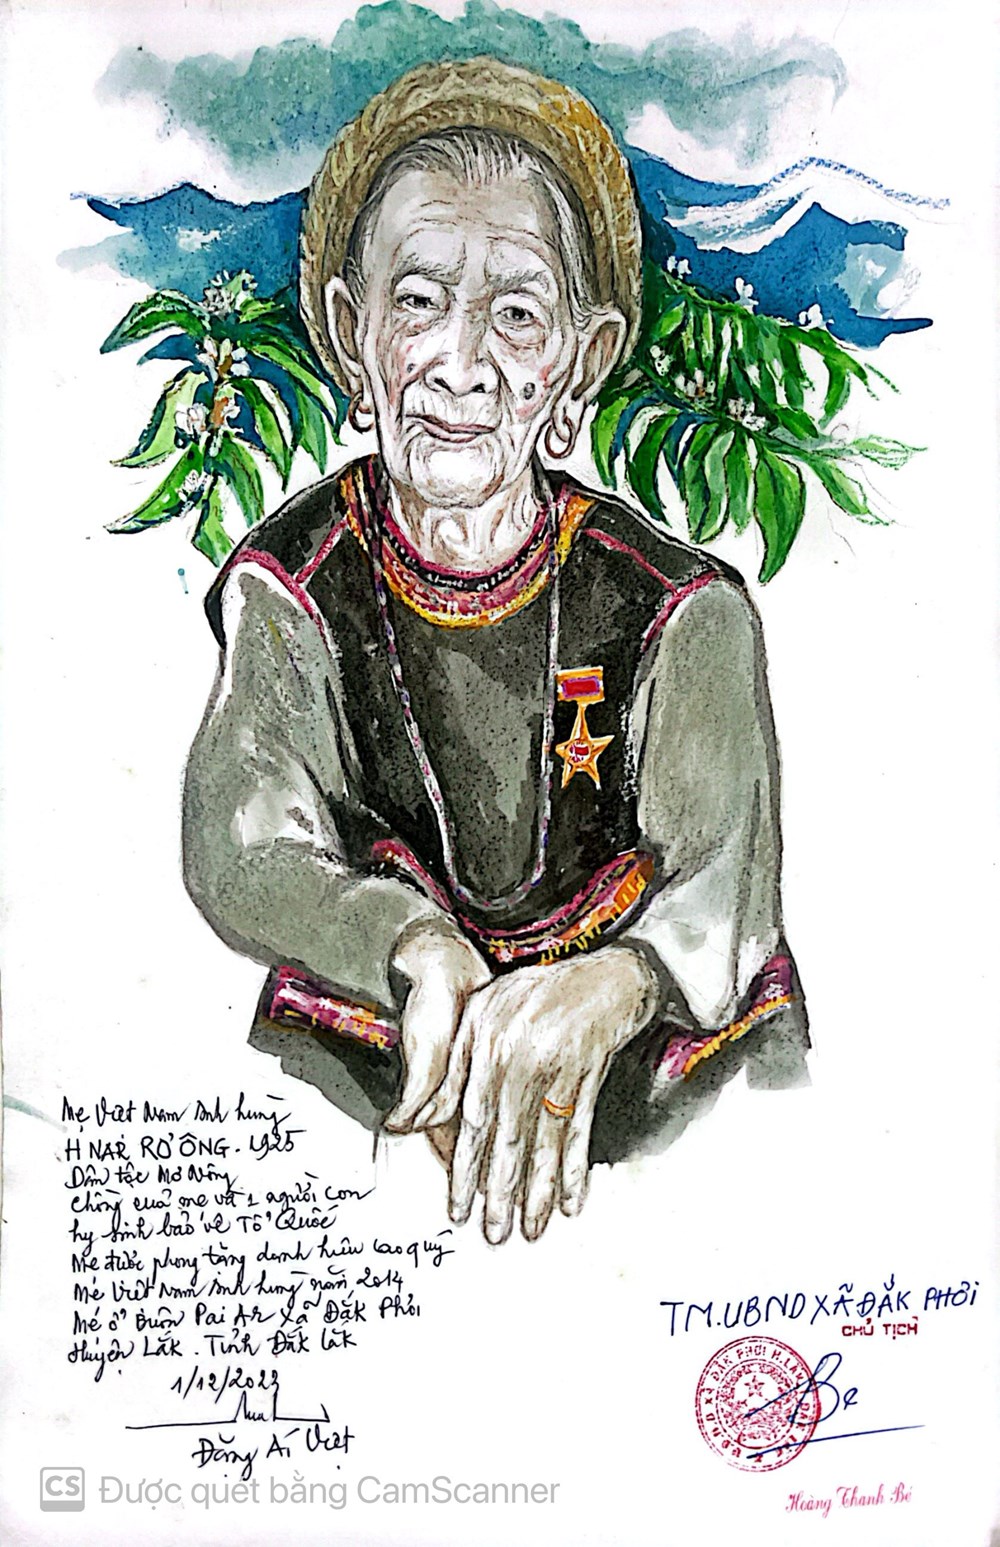 Mẹ Việt Nam Anh hùng
H NAR RƠ ÔNG. 1925
Dân tộc Mơ Nông
Chồng của mẹ và 1 người con
hy sinh bảo vệ Tổ Quốc
Mẹ được phong tặng danh hiệu cao quý
Mẹ Việt Nam Anh hùng năm 2014
Mẹ ở Buôn Pai Ar xã Đắk Phơi
Huyện Lắk. Tỉnh Đắk Lắk
Đặng Ái Việt
TM.UBND XÃ ĐẮK PHƠI
CHỦ TỊCH
Hoàng Thanh Bé
CS Được quét bằng CamScanner